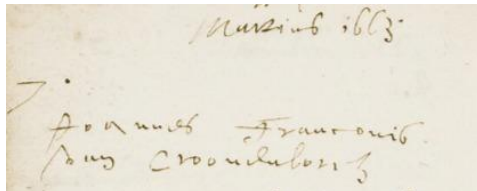 Martius 1663.
7.
Joannes Franconis
van Croonenborch